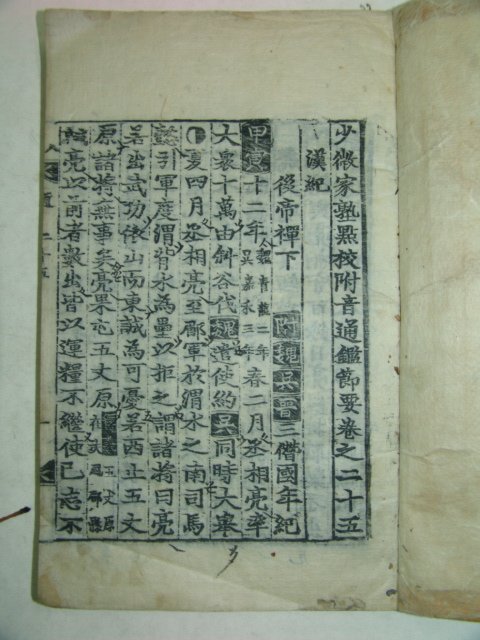 少微家塾點校附音通鑑節要卷之二十五
漢紀
後帝禪下 附魏吳晉三僭國年紀
甲寅十二年魏青龍二年吳嘉禾三年春二月丞相亮率
大衆十萬由斜谷伐魏遣使約吳同時大擧
夏四月丞相亮至郿軍於渭水之南司馬
懿引軍度渭背水爲壘以拒之謂諸將曰亮
若出武功依山而東誠爲可憂若西止五丈
原諸將無事矣亮果屯五丈原
亮以前者數出皆以運糧不繼使己志不